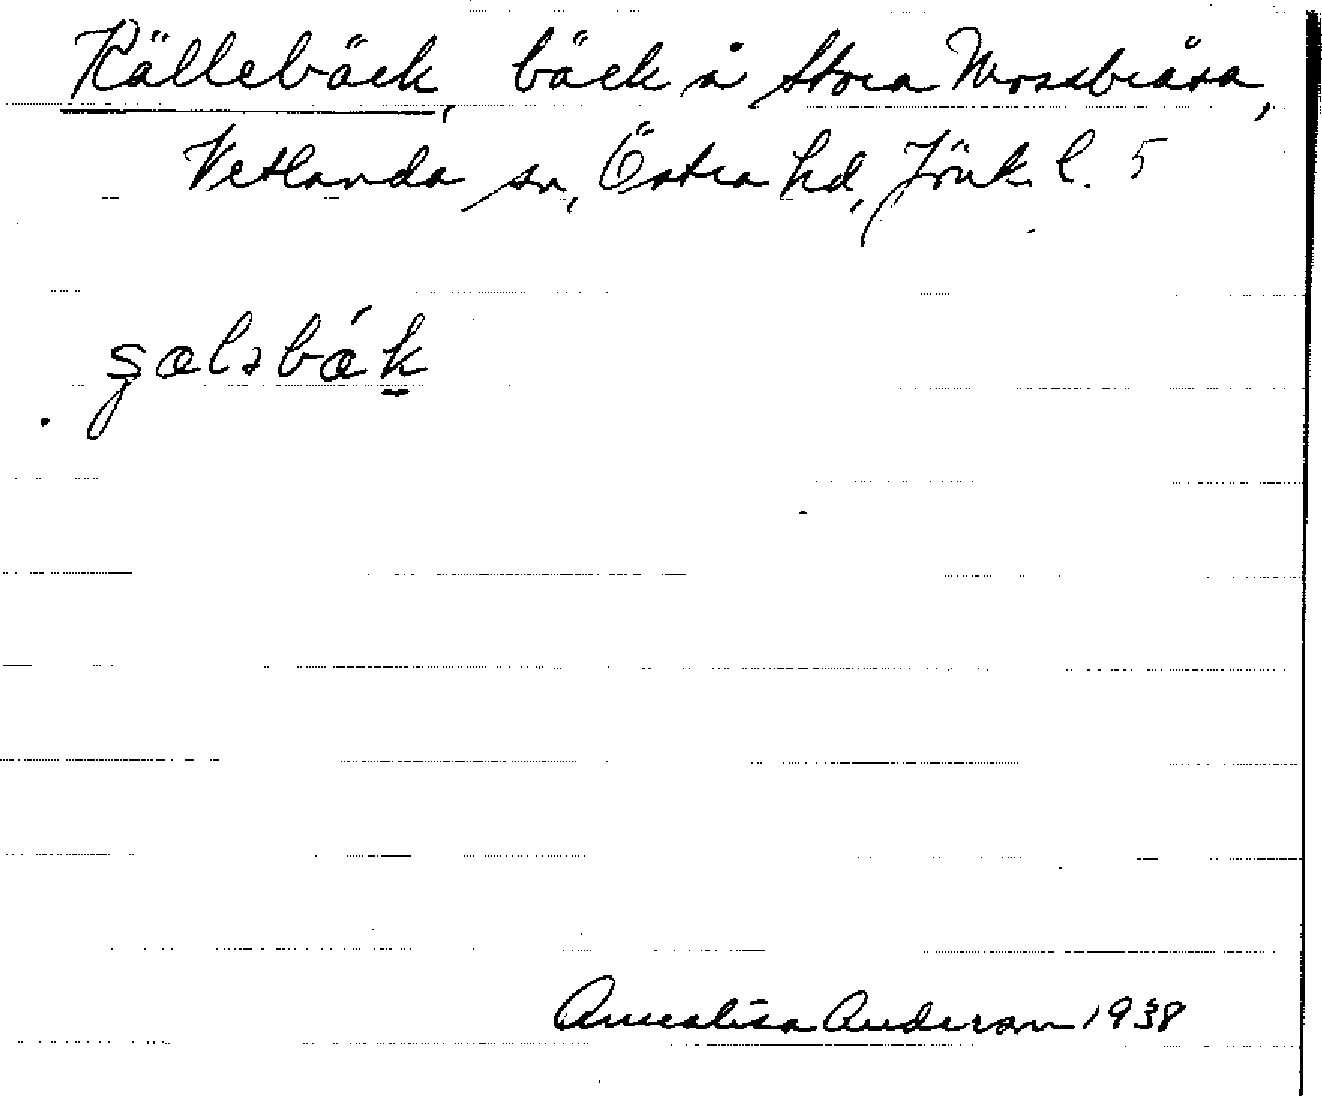 Källebäck, bäck å Stora Mossbråna,
Vetlanda sn, Östra hd, Jönk. l. 5
Annalisa Anderson 1938